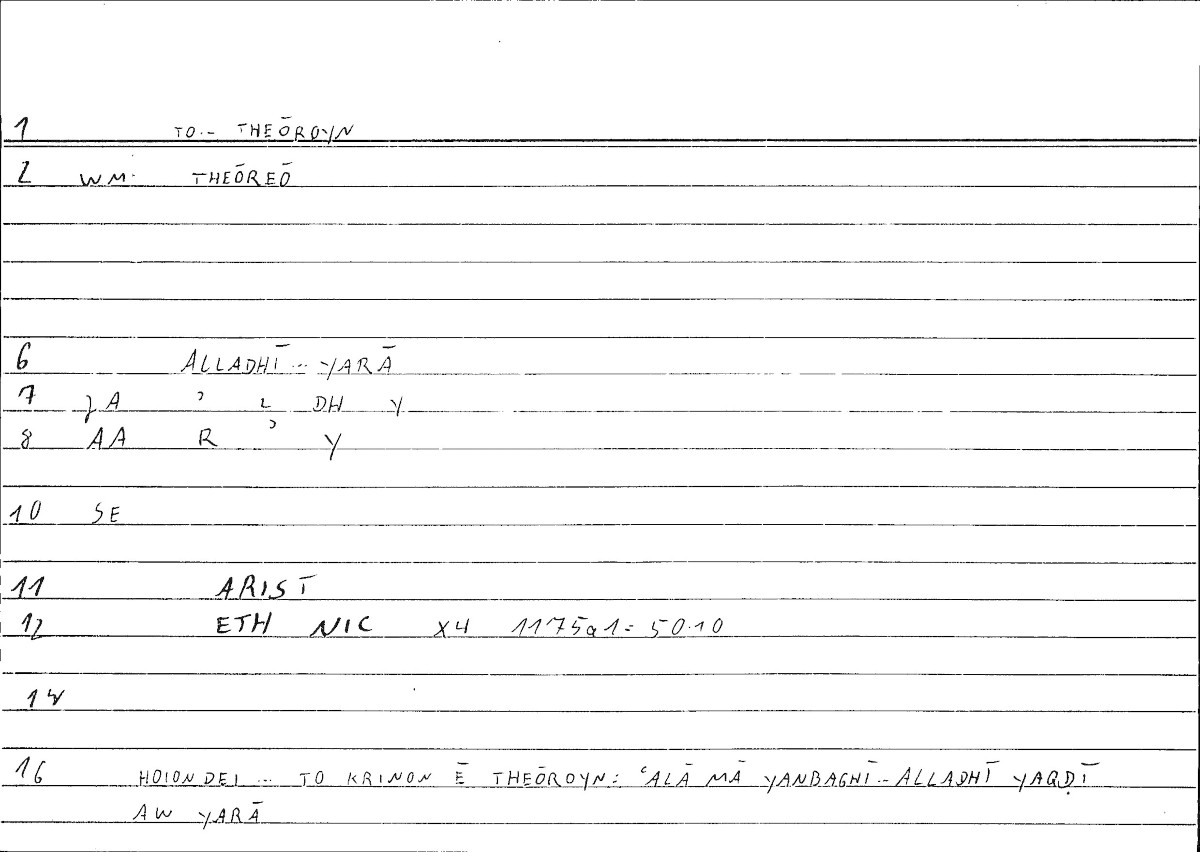 1 TO.– THEŌROYN
2 WM. THEŌREŌ
6 ALLADHĪ... YARĀ
7 JA ʾ L DH Y
8 AA R ʾ Y
10 SE
11 ARIST
12 ETH NIC X4 1175a1= 50.10
14
16 HOION DEI ... TO KRINON Ē THEŌROYN: ʿALĀ MĀ YANBAGHĪ.. ALLADHĪ YAQḌĪ
AW YARĀ